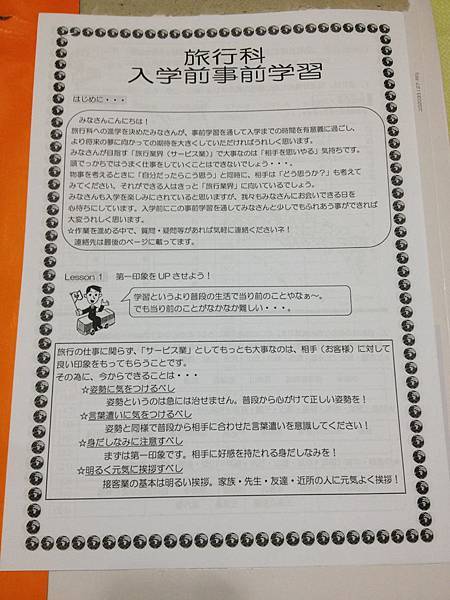 旅行科
入学前事前学習
はじめに・・・
みなさんこんにちは！
旅行科への進学を決めたみなさんが、事前学習を通して入学までの時間を有意義に過ごし、
より将来の夢に向かっての期待を大きくしていただければうれしく思います。
みなさんが目指す「旅行業界（サービス業）」で大事なのは「相手を思いやる」気持ちです。
頭でっかちではうまく仕事をしていくことはできないでしょう・・・。
物事を考えるときに「自分だったらこう思う」と同時に、相手は「どう思うか？」も考えて
みてください。それができる人はきっと「旅行業界」に向いているでしょう。
みなさんも入学を楽しみにされていると思いますが、我々もみなさんにお会いできる日を
心待ちにしています。入学前にこの事前学習を通してみなさんと少しでもふれあう事ができれば
大変うれしく思います。
☆作業を進める中で、質問・疑問等があれば気軽に連絡くださいネ！
連絡先は最後のページに載ってます。
Lesson 1　第一印象を UP させよう！
学習というより普段の生活で当り前のことやなぁ～。
でも当り前のことがなかなか難しい・・・。
旅行の仕事に関らず、「サービス業」としてもっとも大事なのは、相手（お客様）に対して
良い印象をもってもらうことです。
その為に、今からできることは・・・
☆姿勢に気をつけるべし
姿勢というのは急には治せません。普段から心がけて正しい姿勢を！
☆言葉遣いに気をつけるべし
姿勢と同様で普段から相手に合わせた言葉遣いを意識してください！
☆身だしなみに注意すべし
まずは第一印象です。相手に好感を持たれる身だしなみを！
☆明るく元気に挨拶すべし
接客業の基本は明るい挨拶。家族・先生・友達・近所の人に元気よく挨拶！